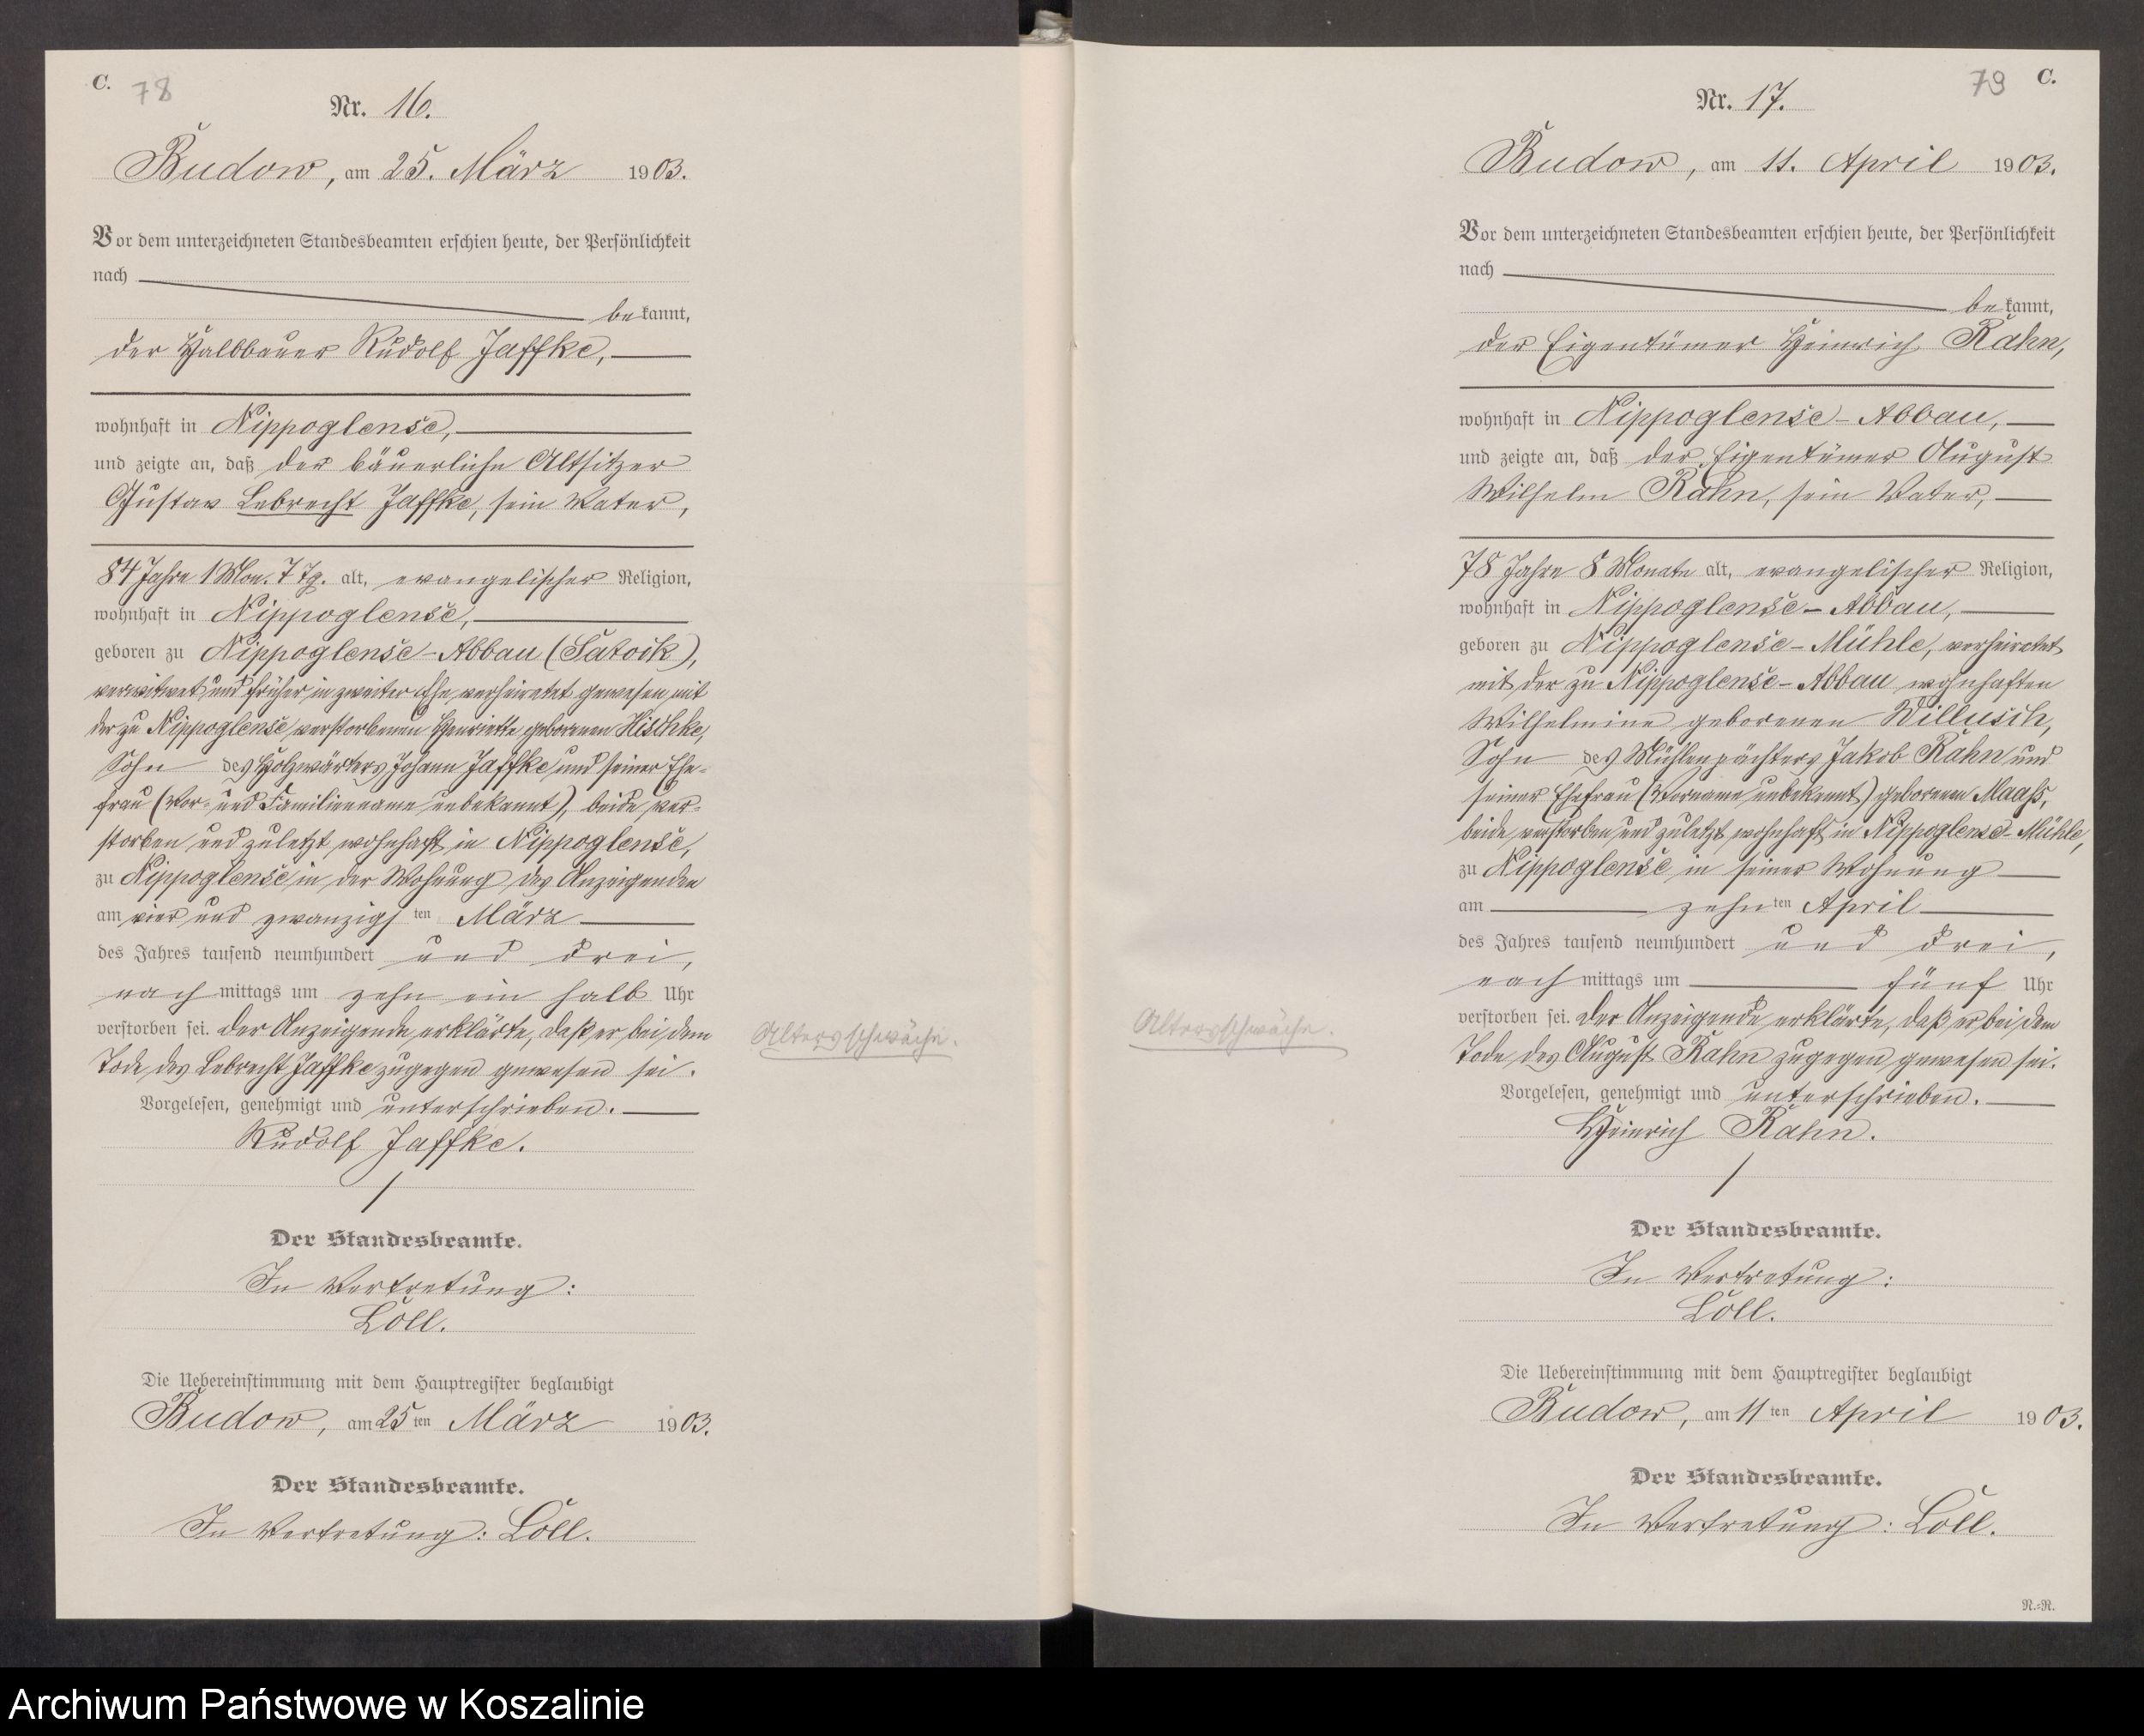 C. 78
Nr. 16.
Budow, am 25. März 1903.
Vor dem unterzeichneten Standesbeamten erschien heute, der Persönlichkeit
nach
bekannt,
der Halbbauer Rudolf Jaffke,
wohnhaft in Nippoglense,
und zeigte an, daß der bäuerliche Altsitzer
Gustav Lebrecht Jaffke, sein Vater,
84 Jahre 1 Mon. 7 Tg. alt, evangelischer Religion,
wohnhaft in Nippoglense,
geboren zu Nippoglense-Abbau (Satoik),
verwitwet und früher in zweiter Ehe verheiratet gewesen mit
der zu Nippoglense verstorbenen Henriette geborenen Hischke,
Sohn des Holzwärters Johann Jaffke und seiner Ehe-
frau (Vor- und Familienname unbekannt), beide ver-
storben und zuletzt wohnhaft in Nippoglense,
zu Nippoglense in der Wohnung des Anzeigenden
am vier und zwanzigsten März
des Jahres tausend neunhundert und drei,
nachmittags um zehn ein halb Uhr
verstorben sei. Der Anzeigende erklärte, daß er bei dem
Tode des Lebrecht Jaffke zugegen gewesen sei.
Altersschwäche.
Vorgelesen, genehmigt und unterschrieben.
Rudolf Jaffke.
Der Standesbeamte.
In Vertretung:
Löll.
Die Uebereinstimmung mit dem Hauptregister beglaubigt
Budow, am 25ten März 1903.
Der Standesbeamte.
In Vertretung: Löll.
79 C.
Nr. 17.
Budow, am 11. April 1903.
Vor dem unterzeichneten Standesbeamten erschien heute, der Persönlichkeit
nach
bekannt,
der Eigentümer Heinrich Rahn,
wohnhaft in Nippoglense-Abbau,
und zeigte an, daß der Eigentümer August
Wilhelm Rahn, sein Vater,
78 Jahre 8 Monate alt, evangelischer Religion,
wohnhaft in Nippoglense-Abbau,
geboren zu Nippoglense-Mühle, verheiratet
mit der zu Nippoglense-Abbau wohnhaften
Wilhelmine geborenen Willusch,
Sohn des Mühlenpächters Jakob Rahn und
seiner Ehefrau (Vorname unbekannt) geborenen Maaß,
beide verstorben und zuletzt wohnhaft in Nippoglense-Mühle,
zu Nippoglense in seiner Wohnung
am zehnten April
des Jahres tausend neunhundert und drei,
nachmittags um fünf Uhr
verstorben sei. Der Anzeigende erklärte, daß er bei dem
Tode des August Rahn zugegen gewesen sei.
Altersschwäche.
Vorgelesen, genehmigt und unterschrieben.
Heinrich Rahn.
Der Standesbeamte.
In Vertretung:
Löll.
Die Uebereinstimmung mit dem Hauptregister beglaubigt
Budow, am 11ten April 1903.
Der Standesbeamte.
In Vertretung: Löll.
N.=N.
Archiwum Państwowe w Koszalinie